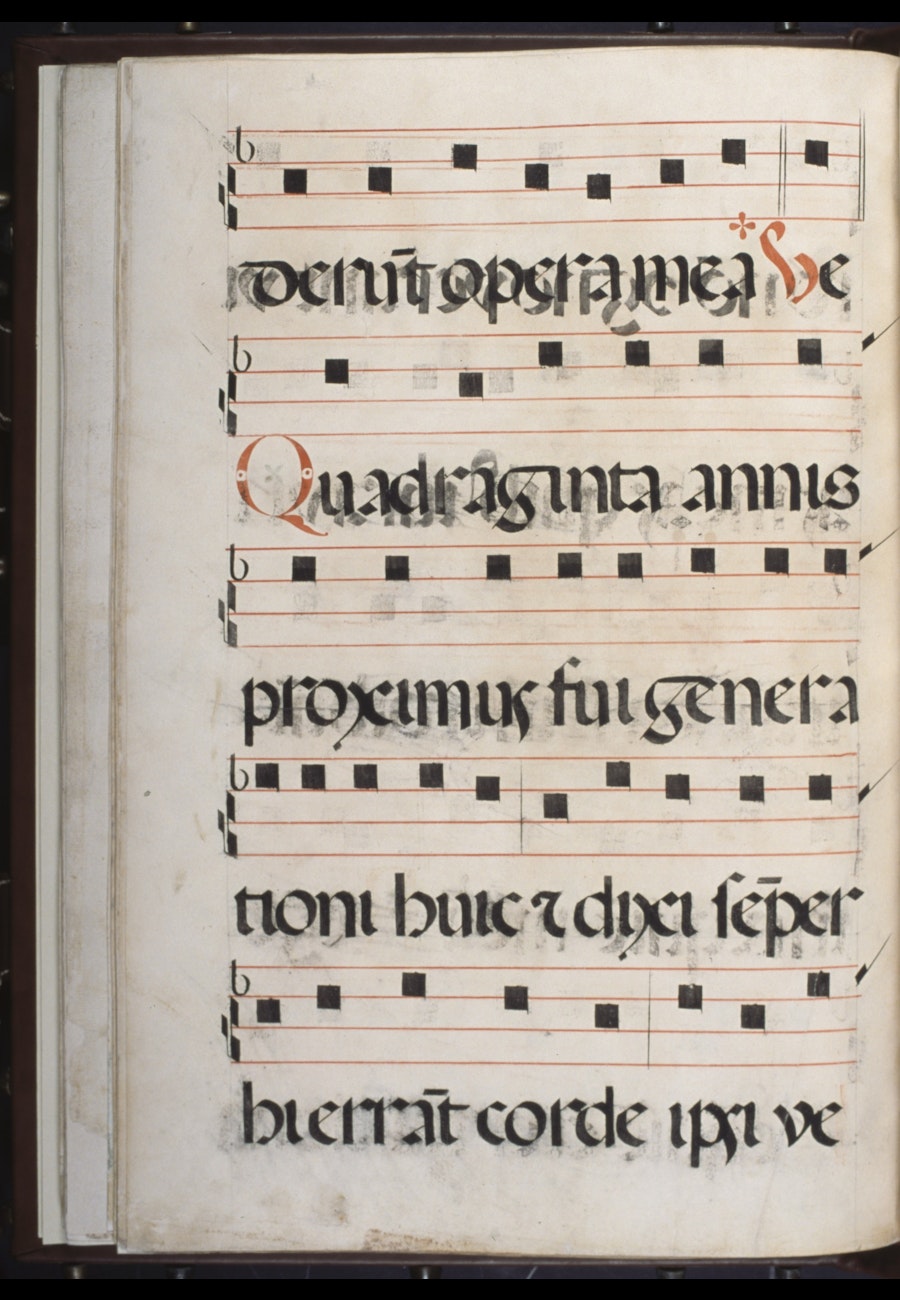 derūt opera mea * Ve
Quadraginta annis
proximus fui genera
tioni huic ⁊ dixi sēper
hi errāt corde ipsi ve